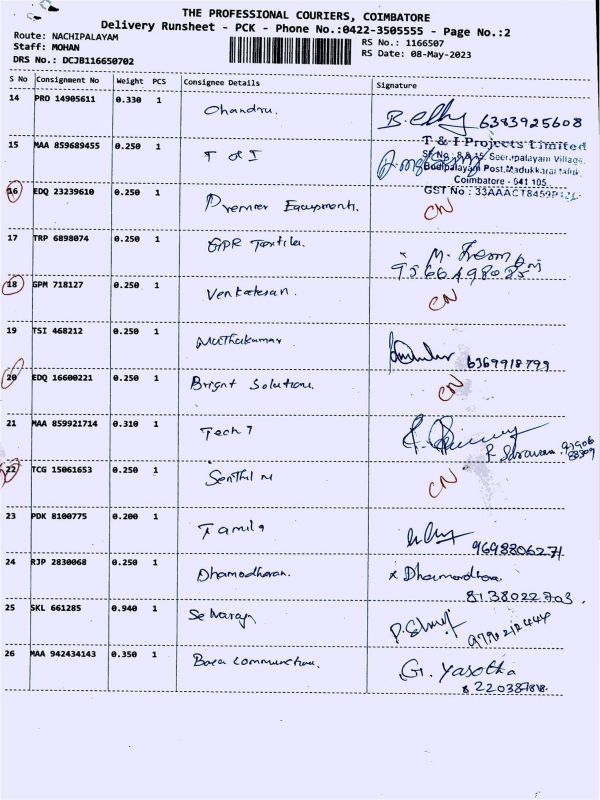 THE PROFESSIONAL COURIERS, COIMBATORE
Delivery Runsheet - PCK - Phone No.:0422-3505555 - Page No.:2
Route: NACHIPALAYAM
RS No.: 1166507
Staff: MOHAN
RS Date: 08-May-2023
DRS No.: DCJB116650702
S No Consignment No Weight PCS Consignee Details Signature
14 PRO 14905611 0.330 1 Chandru. 6383925608
15 MAA 859689455 0.250 1 T & I
T & I Projects Limited
Village,
Post, Madukkarai
Coimbatore - 641 105.
GST No :
16 EDQ 23239610 0.250 1 Premier Equipments. CN
17 TRP 6898074 0.250 1 GPR Textile.
18 GPM 718127 0.250 1 Venkatesan. CN
19 TSI 468212 0.250 1 Muthukumar 6369918799
20 EDQ 16600221 0.250 1 Bright Solutions. CN
21 MAA 859921714 0.310 1 Tech 7
22 TCG 15061653 0.250 1 Senthil M CN
23 PDK 8100775 0.200 1 9698806271
24 RJP 2830068 0.250 1 Dhamodharan. x
8138022703.
25 SKL 661285 0.940 1 Selvaraj
26 MAA 942434143 0.350 1 G. Yasotha